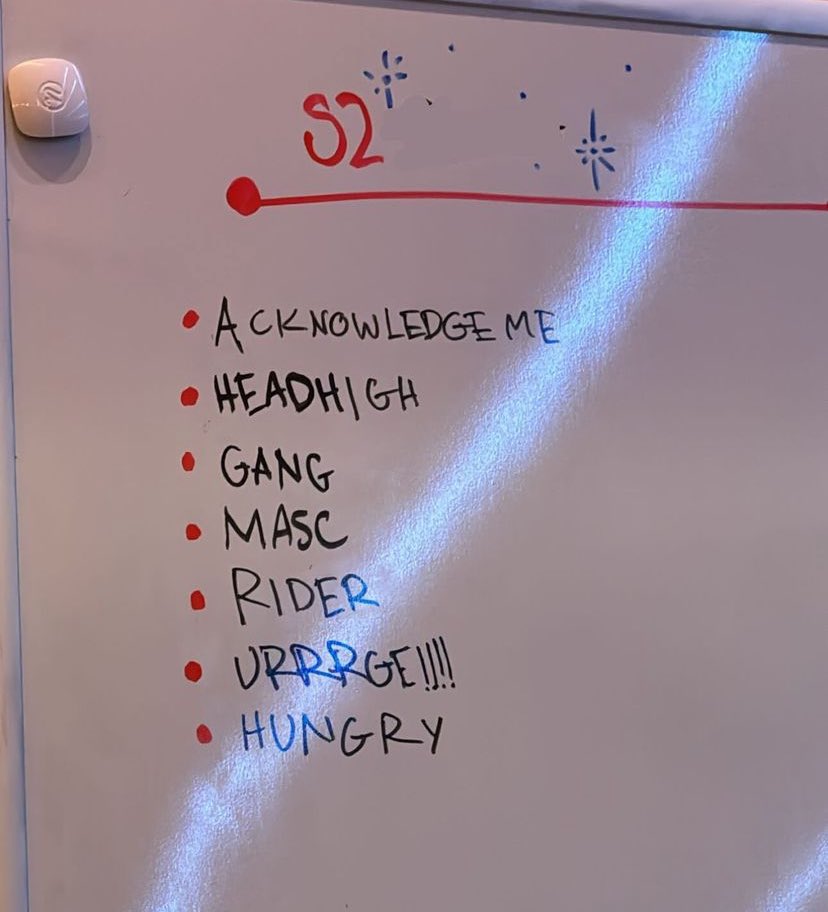 S2
• ACKNOWLEDGE ME
• HEADHIGH
• GANG
• MASC
• RIDER
• URRRGE!!!!
• HUNGRY